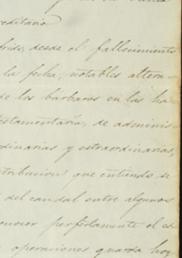 reditaria
desde el fallecimiento
la fecha, notables altera-
de los bárbaros en las ha-
testamentaria, de adminis-
dinarias y extraordinarias,
tribucion que entiendo se
del caudal entre algunos
perfectamente el es
operaciones guarda hoy